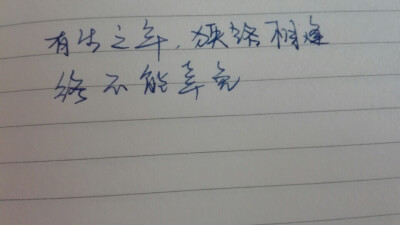 有生之年，狭路相逢
终不能幸免